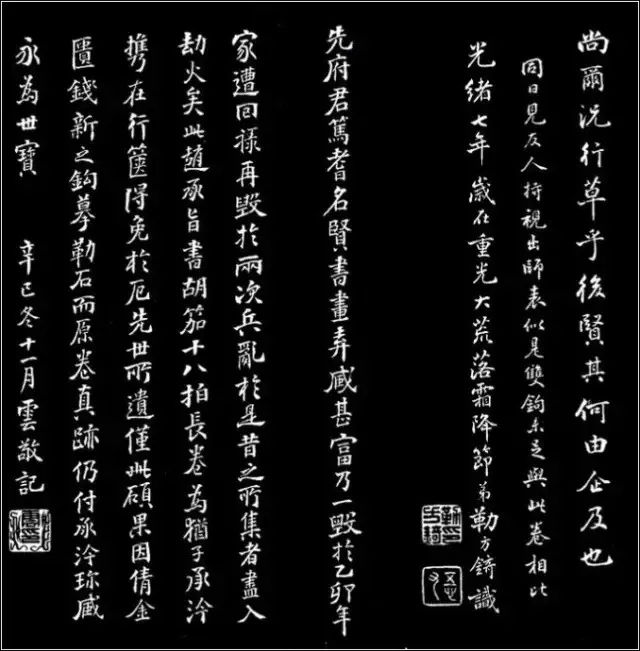 尚爾況行草乎後賢其何由企及也
同日見友人持視出師表似是雙鉤未足與此卷相比
光緒七年歲在重光大荒落霜降節弟勒方錡識
先府君篤耆名賢書畫弆藏甚富乃一毀於乙卯年
家遭回祿再毀於兩次兵亂於是昔之所集者盡入
劫火矣此趙承旨書胡笳十八拍長卷為猶子承泠
攜在行篋得免於厄先世所遺僅此碩果因倩金
匱錢新之鉤摹勒石而原卷真跡仍付承泠珍藏
永為世寶 辛巳冬十一月雲敬記